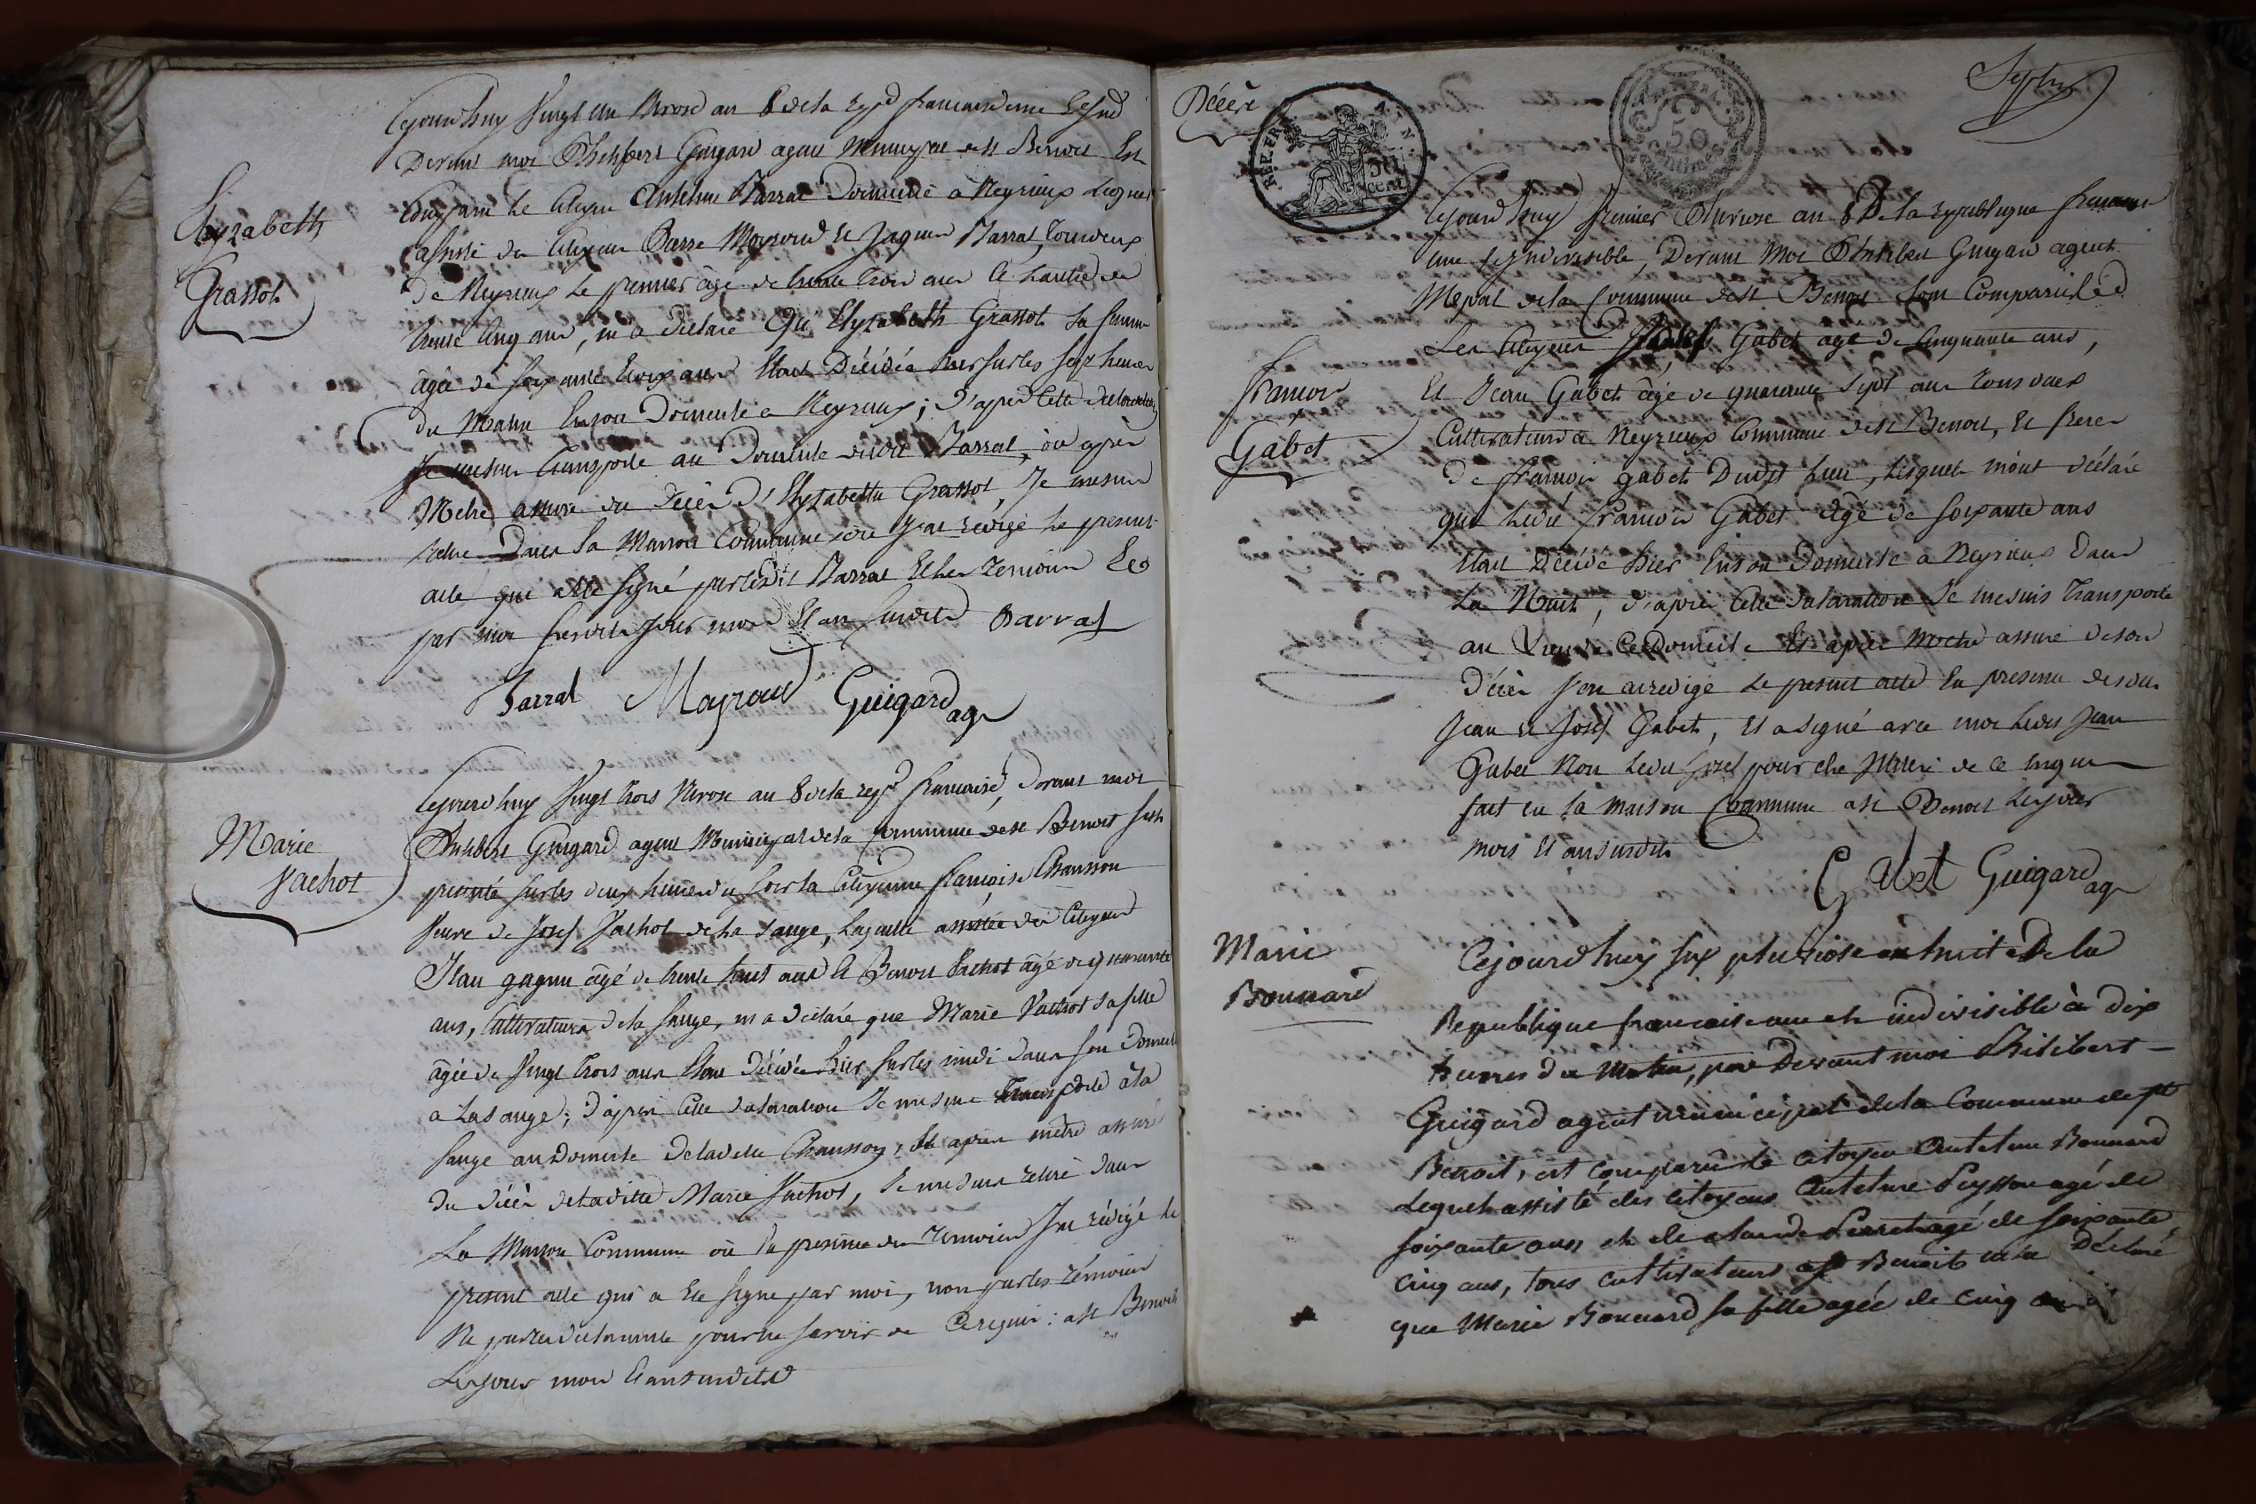 Elyzabeth
Grassot
Cejourdhuy Vingt un Nivose an 8 de la rep.e francaise une
Devant moi Philibert Guigard agent Municipal de St Benoit Est
Comparu le Citoyen Antelme Barrat Domicilié a Neyrieux Lequel
assisté des Citoyens Pierre Moyroud et Jaques Barrat, tous deux
de Neyrieux le premier âgé de trente trois ans le
trente cinq ans, m'a déclaré Qu'Elyzabeth Grassot sa femme
âgée de soixante ans Etait Décédée hier sur les sept heures
du Matin En son Domicile a Neyrieux; d'après Cette déclaration
Je me suis transporté au Domicile dudit Barrat, où après
M'etre assuré du Décès d'Elyzabette Grassot, Je me suis
retiré Dans la Maison Commune où J'ai rédigé le present
acte qui a été signé par ledit Barrat et les temoins Et
par moi lesdits Jour mois et an susdits Barrat
Barral Moyroud Guigard ag
Marie
Vachot
Cejourdhuy Vingt trois Nivose an 8 de la rep.e francaise, devant moi
Philibert Guigard agent Municipal de la Commune de St Benoit s'est
presenté sur les deux heures du soir la Citoyenne francoise Chausson
Veuve de Josef Vachot de la Sauge, Laquelle assistée des Citoyens
Jean gagneu âgé de trente huit ans Et Benoit Vachot âgé de quarante
ans, Cultivateurs de la Sauge, m'a déclaré que Marie Vachot sa fille
âgée de Vingt trois ans Etait Décédée hier sur les midi dans son Domicile
a La Sauge; d'après Cette déclaration Je me suis transporté à la
Sauge au Domicile de ladite Chausson, Et après m'etre assuré
du décès de ladite Marie Vachot, Je me suis retiré dans
La Maison Commune où En presence des temoins J'ai rédigé le
present acte qui a Eté signé par moi, non par les témoins
Ni par la déclarante pour ne savoir de Ce requis: a St Benoit
Les Jour mois Et an susdits
Décès
REP. FRA.
50
cent
50
centimes
Francois
Gabet
Cejourdhuy premier Pluviose an 8 De la republique francaise
une et Indivisible, Devant Moi Philibert Guigard agent
M.pal de la Commune de St Benoit Sont Comparus
Les Citoyens Josef Gabet agé de Cinquante ans,
Et Jean Gabet âgé de quarante sept ans tous deux
Cultivateurs a Neyrieux Commune de St Benoit, Et freres
de francois gabet Dudit Lieu, Lesquels m'ont déclaré
que Ledit francois Gabet âgé de soixante ans
Etait Décédé hier En son Domicile a Neyrieux dans
La Nuit, d'après Cette déclaration Je me suis transporté
au Lieu de Ce Domicile Et après m'etre assuré de son
décès J'en ai redigé le present acte En presence desdits
Jean et Josef Gabet, Et a signé avec moi Ledit Jean
Gabet Non Ledit Josef pour etre de ce requis
fait en la maison Commune a St Benoit les jour
mois Et an susdits
Gabet Guigard ag
Marie
Bonnard
Cejourd'huy six pluviose an huit de la
Republique francaise une et indivisible à dix
heures du Matin, par Devant moi Philibert
Guigard agent municipal de la Commune de St
Benoit, est comparu le citoyen Antelme Bonnard
Lequel assisté des citoyens Antelme Peysson agé de
soixante ans et de Claude Perret agé de soixante
cinq ans, tous cultivateurs a St Benoit m'a Déclaré
que Marie Bonnard sa fille agée de cinq ans